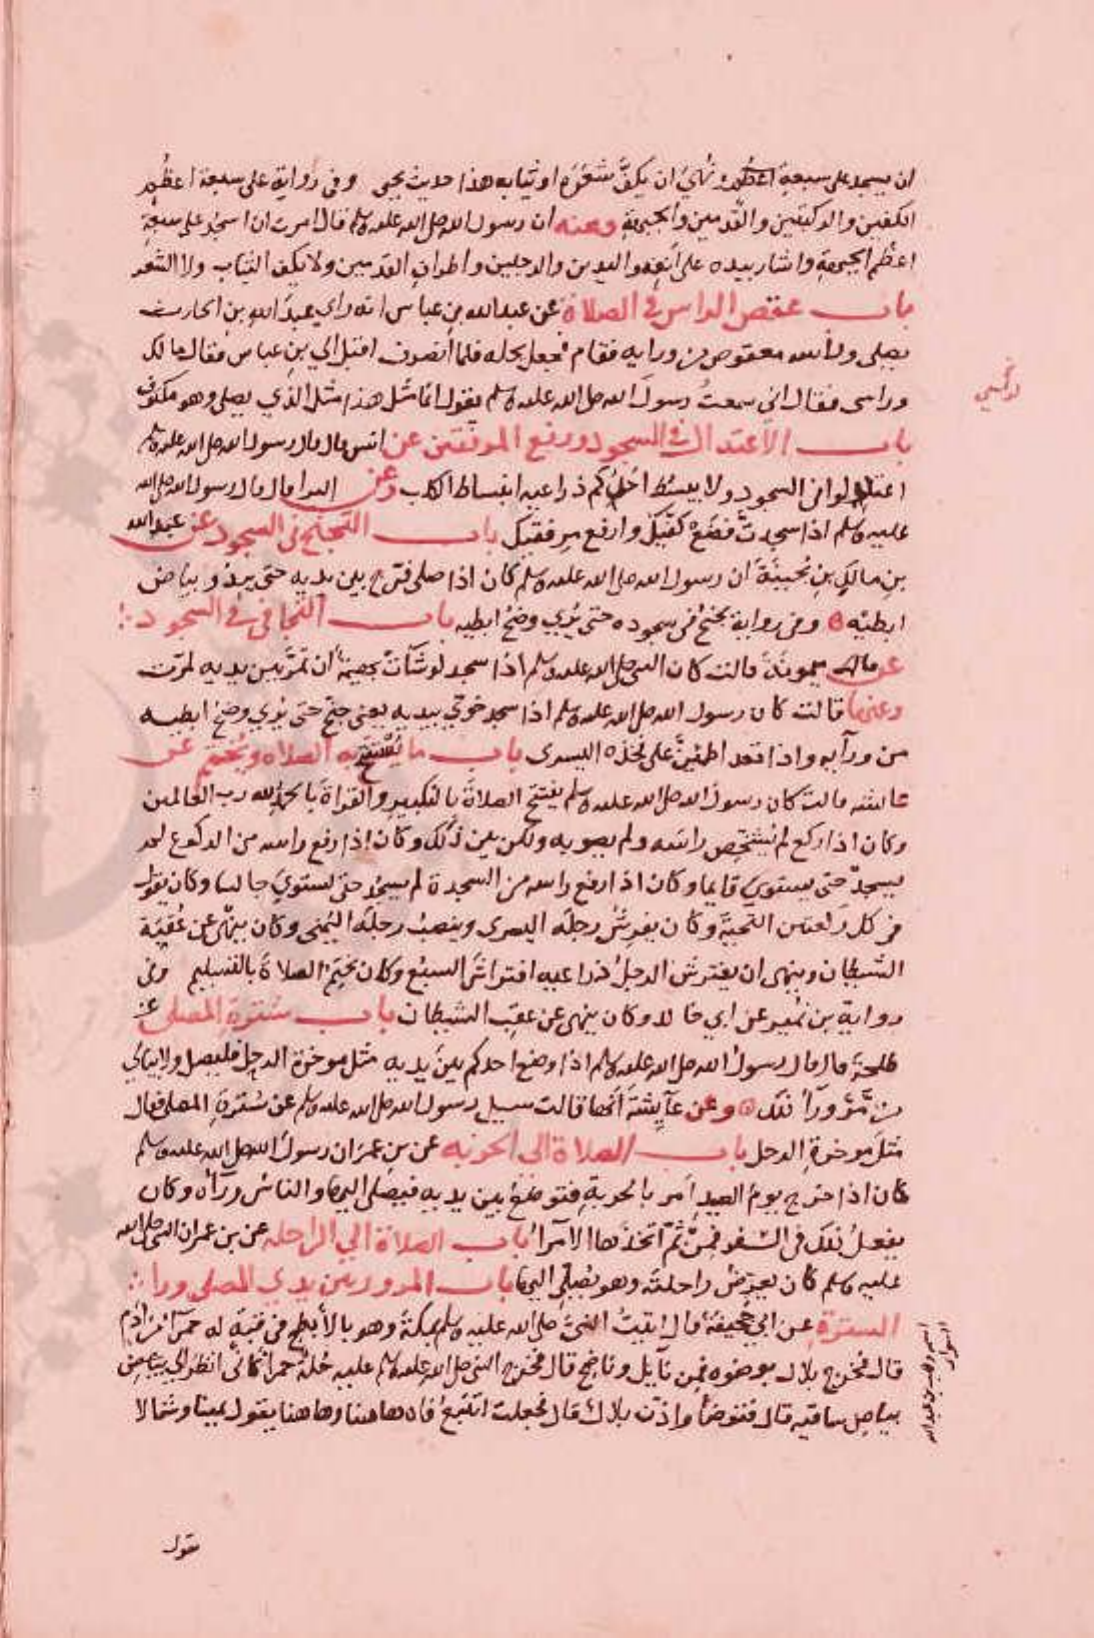 ان يسجد على سبعة اعظم ونُهي ان يكفَّ شَعَرَه او ثيابه هذا حديث يحيى وفى رواية على سبعة اعظُم
الكفين والركبتين والقدمين والجبهة وعنه ان رسول الله صلى الله عليه وسلم قال امرت ان اسجد على سبعة
اعظُم الجبهة واشار بيده على انفه واليدين والرجلين واطراف القدمين ولا يكف الثياب ولا الشعر
باب عقص الراس فى الصلاة عن عبد الله بن عباس انه راي عبد الله بن الحارث
يصلى وراسه معقوص من ورايه فقام فجعل يحله فلما انصرف اقبل الي بن عباس فقال مالك
وراسى فقال انى سمعتُ رسول الله صلى الله عليه وسلم يقول انما مثل هذا مثل الذي يصلى وهو مكتوف
باب الاعتدال فى السجود ورفع المرفقين عن انس قال قال رسول الله صلى الله عليه وسلم
اعتدلوا فى السجود ولا يبسُط احدُكم ذراعيه انبساط الكلب وعن البرا قال قال رسول الله صلى الله
عليه وسلم اذا سجدتَّ فضَعْ كفيك وارفع مرفقيك باب التجنح فى السجود عن عبد الله
بن مالكٍ بنِ بُحينَةَ ان رسول الله صلى الله عليه وسلم كان اذا صلى فرّج بين يديه حتى يبدُو بياض
ابطيْه وفى رواية يجنحُ فى سجوده حتى يُري وضحُ ابطيه باب التجافى فى السجود
عن ميمونةَ قالت كان النبى صلى الله عليه وسلم اذا سجد لو شآت بهيمةٌ ان تمرَّ بين يديه لمرّت
وعنها قالت كان رسول الله صلى الله عليه وسلم اذا سجد خوّي بيديه يعنى جنّح حتى يُري وضحُ ابطيه
من ورآيه واذا قعد اطمئنَّ على فخذه اليسرى باب ما يُفتتح به الصلاه ويُختم عن
عائشه قالت كان رسول الله صلى الله عليه وسلم يفتتح الصلاةَ بالتكبيرِ والقراةَ بالحمدُ لله رب العالمين
وكان اذا ركع لم يُشخِّص راسَه ولم يصوبه ولكن بين ذلك وكان اذا رفع راسه من الركوع لم
يسجدْ حتى يستويَ قايما وكان اذا رفع راسه من السجدة لم يسجُد حتى يستويَ جالسا وكان يقول
فى كل ركعتين التحيةَ وكان يفرِشُ رجلَه اليسرى وينصبُ رجلَه اليُمنى وكان ينهى عن عُقبَةِ
الشيطان وينهى ان يفترشَ الرجلُ ذراعيه افتراشَ السبُع وكان يختِم الصلاةَ بالتسليم وفى
رواية بن نُميرٍ عن ابي خالد وكان ينهى عن عقِبِ الشيطان باب سُترة المصلى عن
طلحةَ قال قال رسولُ الله صلى الله عليه وسلم اذا وضع احدكم بينَ يديه مثلَ موخرة الرحل فليصل ولا يبالي
من مَّرَّ ورآ ذلك وعن عآيشةَ أنها قالت سيل رسول الله صلى الله عليه وسلم عن سُترةِ المصلى فقال
مثلَ موخرة الرحل باب الصلاة الى الحربه عن بن عمران رسول الله صلى الله عليه وسلم
كان اذا خرج يومَ العيدِ أمر بالحربةِ فتوضَعُ بين يديه فيصلى اليها والناسُ ورآه وكان
يفعلُ ذلك فى السفر فمِنْ ثَمَّ اتخذَها الامرآُ باب الصلاة الي الراحله عن بن عمران النبى صلى الله
عليه وسلم كان يعرّضُ راحلتَه وهو يُصلي اليها باب المرور بين يدي المصلى ورا
السترةِ عن ابى جُحيفةَ قال اتيتُ النبيَّ صلى الله عليه وسلم بمكةَ وهو بالأبطَح فى قبةٍ له حمرآ من ادم
قال فخرج بلال بوضوه فمِن نآيل وناضِح قال فخرج النبى صلى الله عليه وسلم عليه حُلةٌ حمرا كانى انظر الي بياض
بياض ساقيه قال فتوضأ واذّن بلال قال فجعلت اتتبّعُ فاه هاهنا وهاهنا يقول يمينا وشمالا
يقول